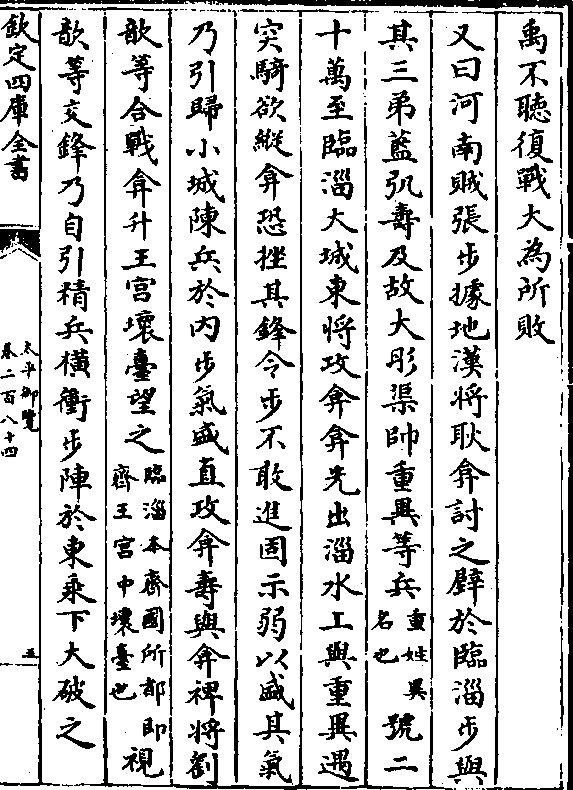 禹不聽復戰大為所敗
又曰河南賊張步據地漢將耿弇討之壁於臨淄步與
其三弟藍弘壽及故大彤渠帥重異等兵重姓異名也號二
十萬至臨淄大城東將攻弇弇先出淄水上與重異遇
突騎欲縱弇恐挫其鋒令步不敢進固示弱以盛其氣
乃引歸小城陳兵於内步氣盛直攻弇壽與弇裨將劉
歆等合戰弇升王宮壞臺望之臨淄本齊國所都即齊王宮中壞臺也視
歆等交鋒乃自引精兵横衝步陣於東乗下大破之
欽定四庫全書
太平御覽
卷二百八十四
五